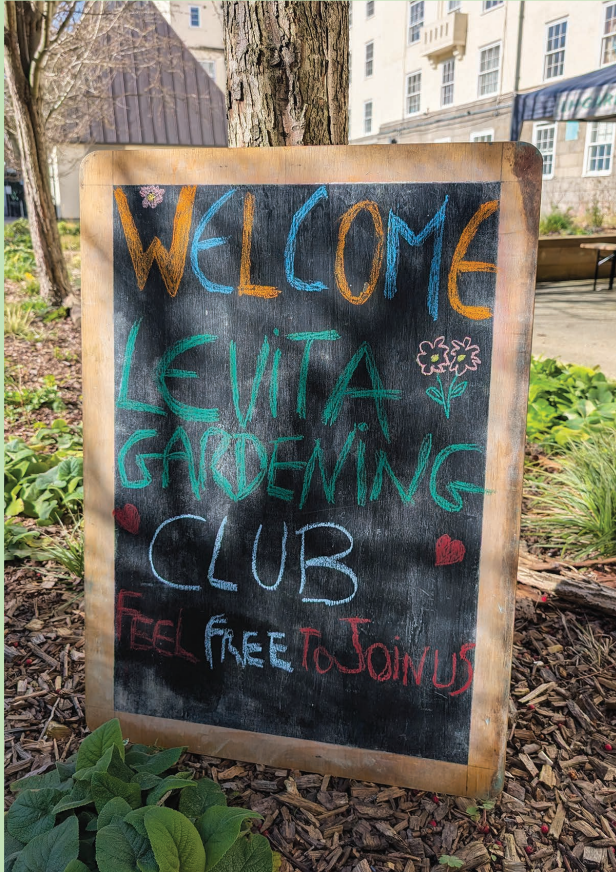 WELCOME
LEViTA
GARDENiNG
CLUB
FEEL FREE To JOiN US